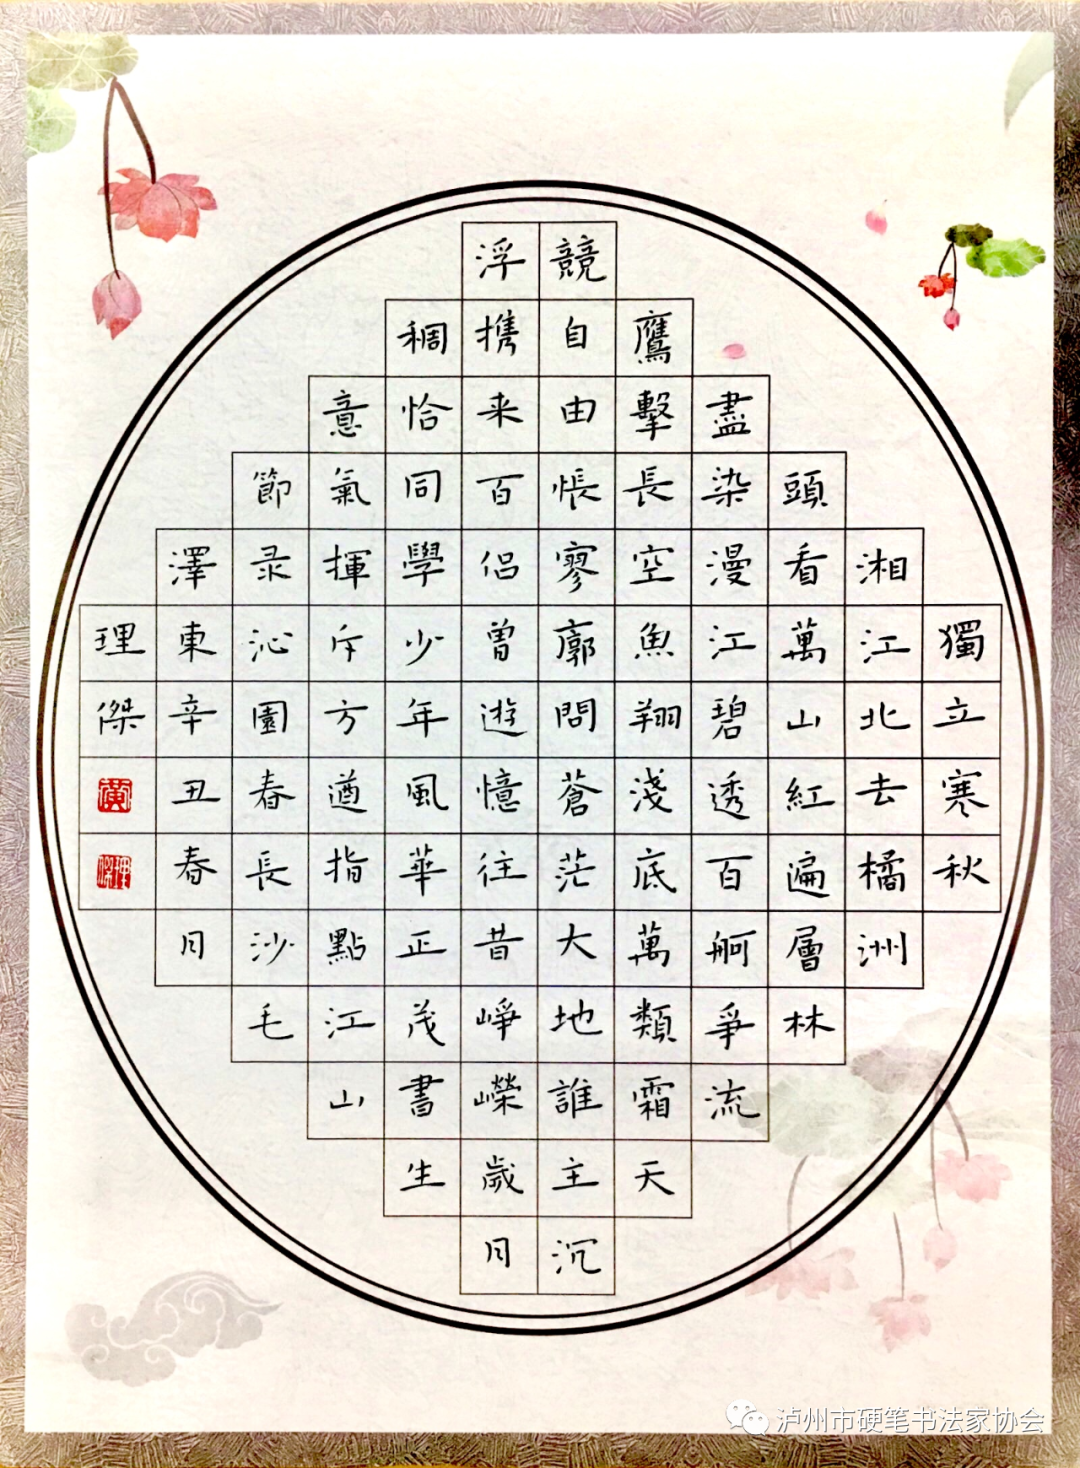 獨立寒秋
湘江北去橘洲
頭看萬山紅遍層林
盡染漫江碧透百舸爭流
鷹擊長空魚翔淺底萬類霜天
競自由悵寥廓問蒼茫大地誰主沉
浮携来百侣曾遊憶往昔崢嶸歲月
稠恰同學少年風華正茂書生
意氣揮斥方遒指點江山
節录沁園春長沙毛
澤東辛丑春月
理傑
黄
理傑
泸州市硬笔书法家协会